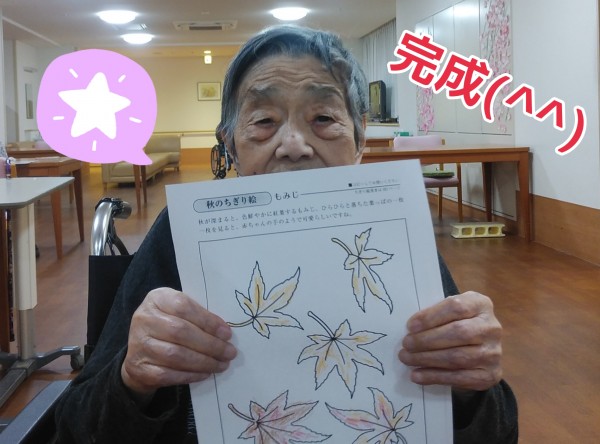 完成(^^)
秋のちぎり絵 もみじ
秋が深まると、色鮮やかに紅葉するもみじ。ひらひらと舞う葉っぱの一枚
一枚を見ると、赤ちゃんの手のようで可愛らしいですね。